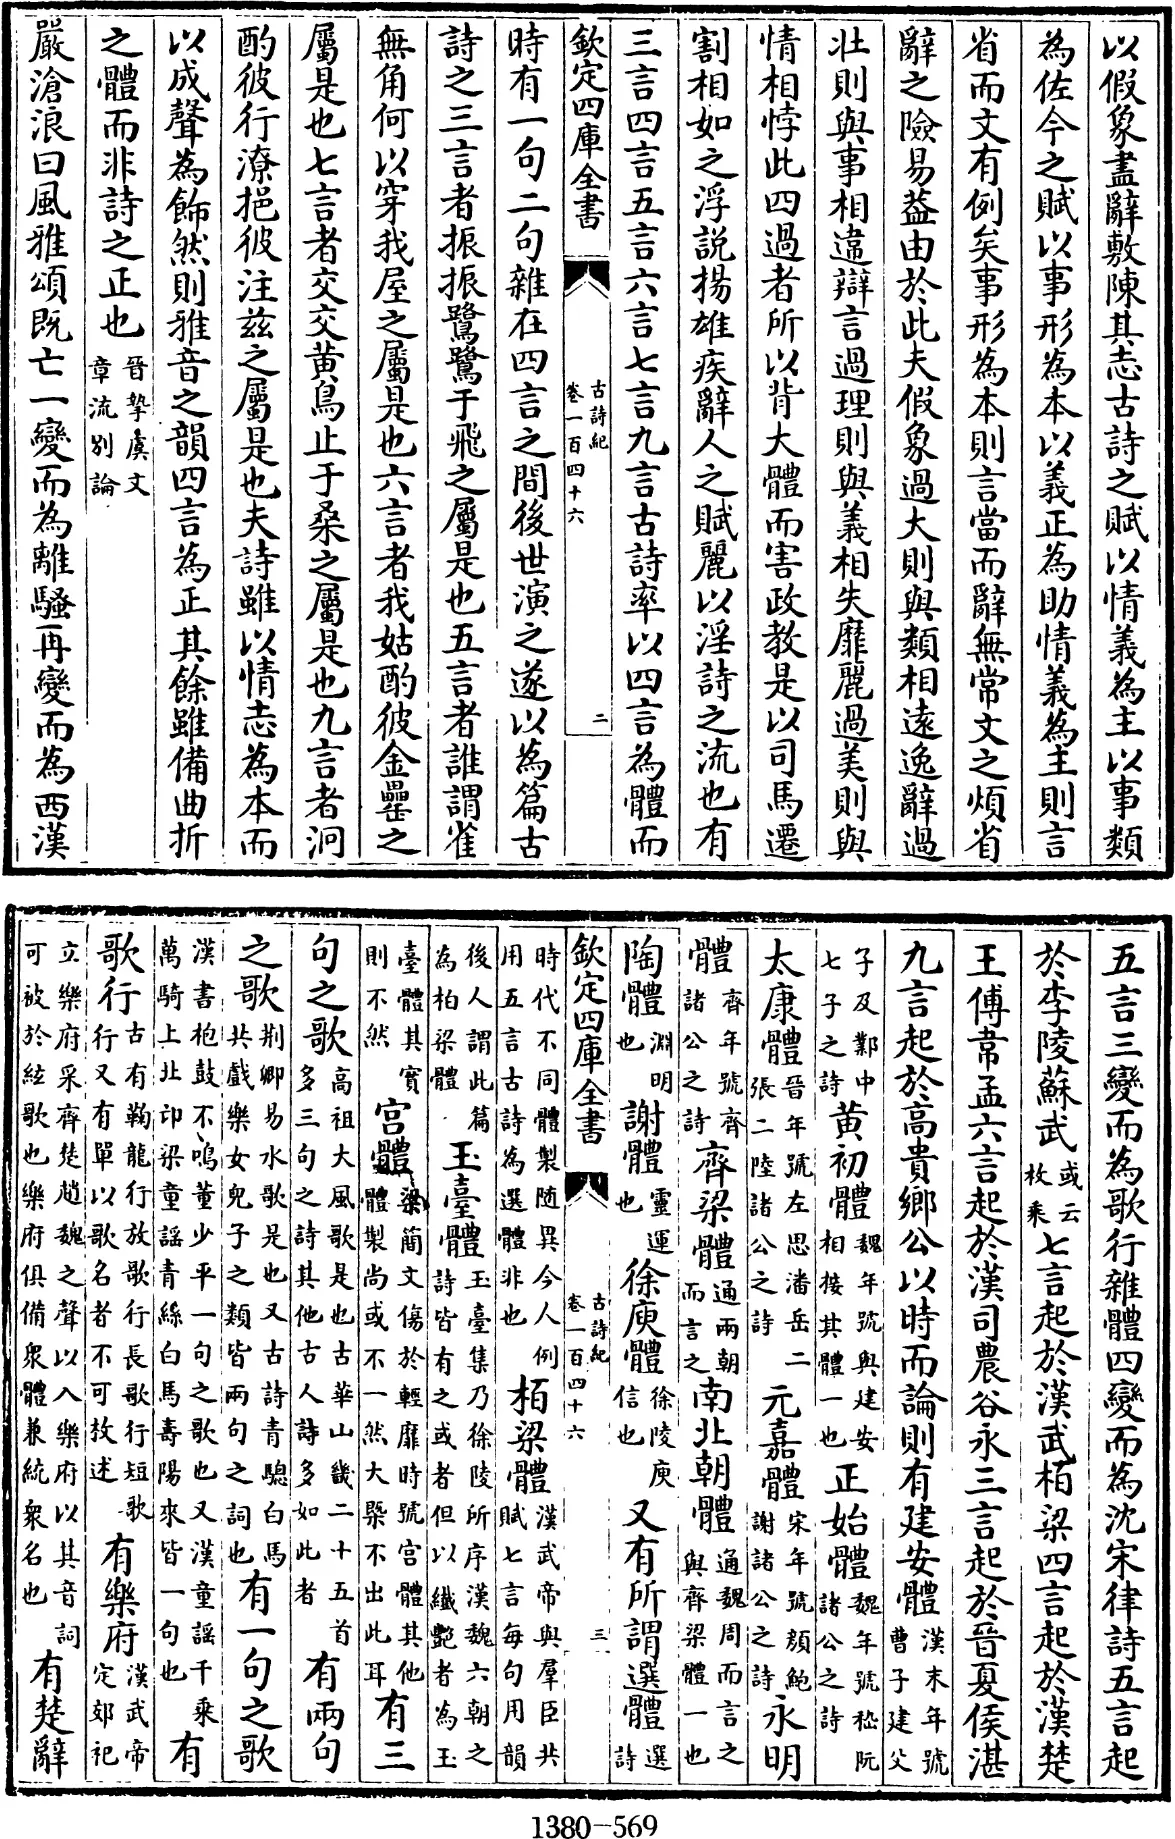 以假象盡辭敷陳其志古詩之賦以情義為主以事類
為佐今之賦以事形為本以義正為助情義為主則言
省而文有例矣事形為本則言當而辭無常文之煩省
辭之險易葢由於此夫假象過大則與類相遠逸辭過
壯則與事相違辯言過理則與義相失靡麗過美則與
情相悖此四過者所以背大體而害政教是以司馬遷
割相如之浮說揚雄疾辭人之賦麗以淫詩之流也有
三言四言五言六言七言九言古詩率以四言為體而
欽定四庫全書 古詩紀 卷一百四十六 二
時有一句二句雜在四言之間後世演之遂以為篇古
詩之三言者振振鷺鷺于飛之屬是也五言者誰謂雀
無角何以穿我屋之屬是也六言者我姑酌彼金罍之
屬是也七言者交交黃鳥止于桑之屬是也九言者泂
酌彼行潦挹彼注茲之屬是也夫詩雖以情志為本而
以成聲為飾然則雅音之韻四言為正其餘雖備曲折
之體而非詩之正也晉摯虞文章流別論
嚴滄浪曰風雅頌既亡一變而為離騷再變而為西漢
五言三變而為歌行雜體四變而為沈宋律詩五言起
於李陵蘇武或云枚乘七言起於漢武柏梁四言起於漢楚
王傅韋孟六言起於漢司農谷永三言起於晉夏侯湛
九言起於高貴鄉公以時而論則有建安體漢末年號曹子建父
子及鄴中七子之詩黃初體魏年號與建安相接其體一也正始體魏年號嵇阮諸公之詩
太康體晉年號左思潘岳二張二陸諸公之詩元嘉體宋年號顏鮑謝諸公之詩永明
體齊年號齊諸公之詩齊梁體通兩朝而言之南北朝體通魏周而言之與齊梁體一也
陶體淵明也謝體靈運也徐庾體徐陵庾信也又有所謂選體選詩
欽定四庫全書 古詩紀 卷一百四十六 三
時代不同體製随異今人例用五言古詩為選體非也柏梁體漢武帝與羣臣共賦七言每句用韻
後人謂此篇為柏梁體玉臺體玉臺集乃徐陵所序漢魏六朝之詩皆有之或者但以纖艷者為玉
臺體其實則不然宮體梁簡文傷於輕靡時號宮體其他體製尚或不一然大槩不出此耳有三
句之歌高祖大風歌是也古華山畿二十五首多三句之詩其他古人詩多如此者有兩句
之歌荆卿易水歌是也又古詩青驄白馬共戲樂女兒子之類皆兩句之詞也有一句之歌
漢書枹鼓不鳴董少平一句之歌也又漢童謠千乘萬騎上北邙梁童謠青絲白馬壽陽來皆一句也有
歌行古有鞠龍行放歌行長歌行短歌行又有單以歌名者不可枚述有樂府漢武帝定郊祀
立樂府采齊楚趙魏之聲以入樂府以其音詞可被於絃歌也樂府俱備衆體兼統衆名也有楚辭
1380—569